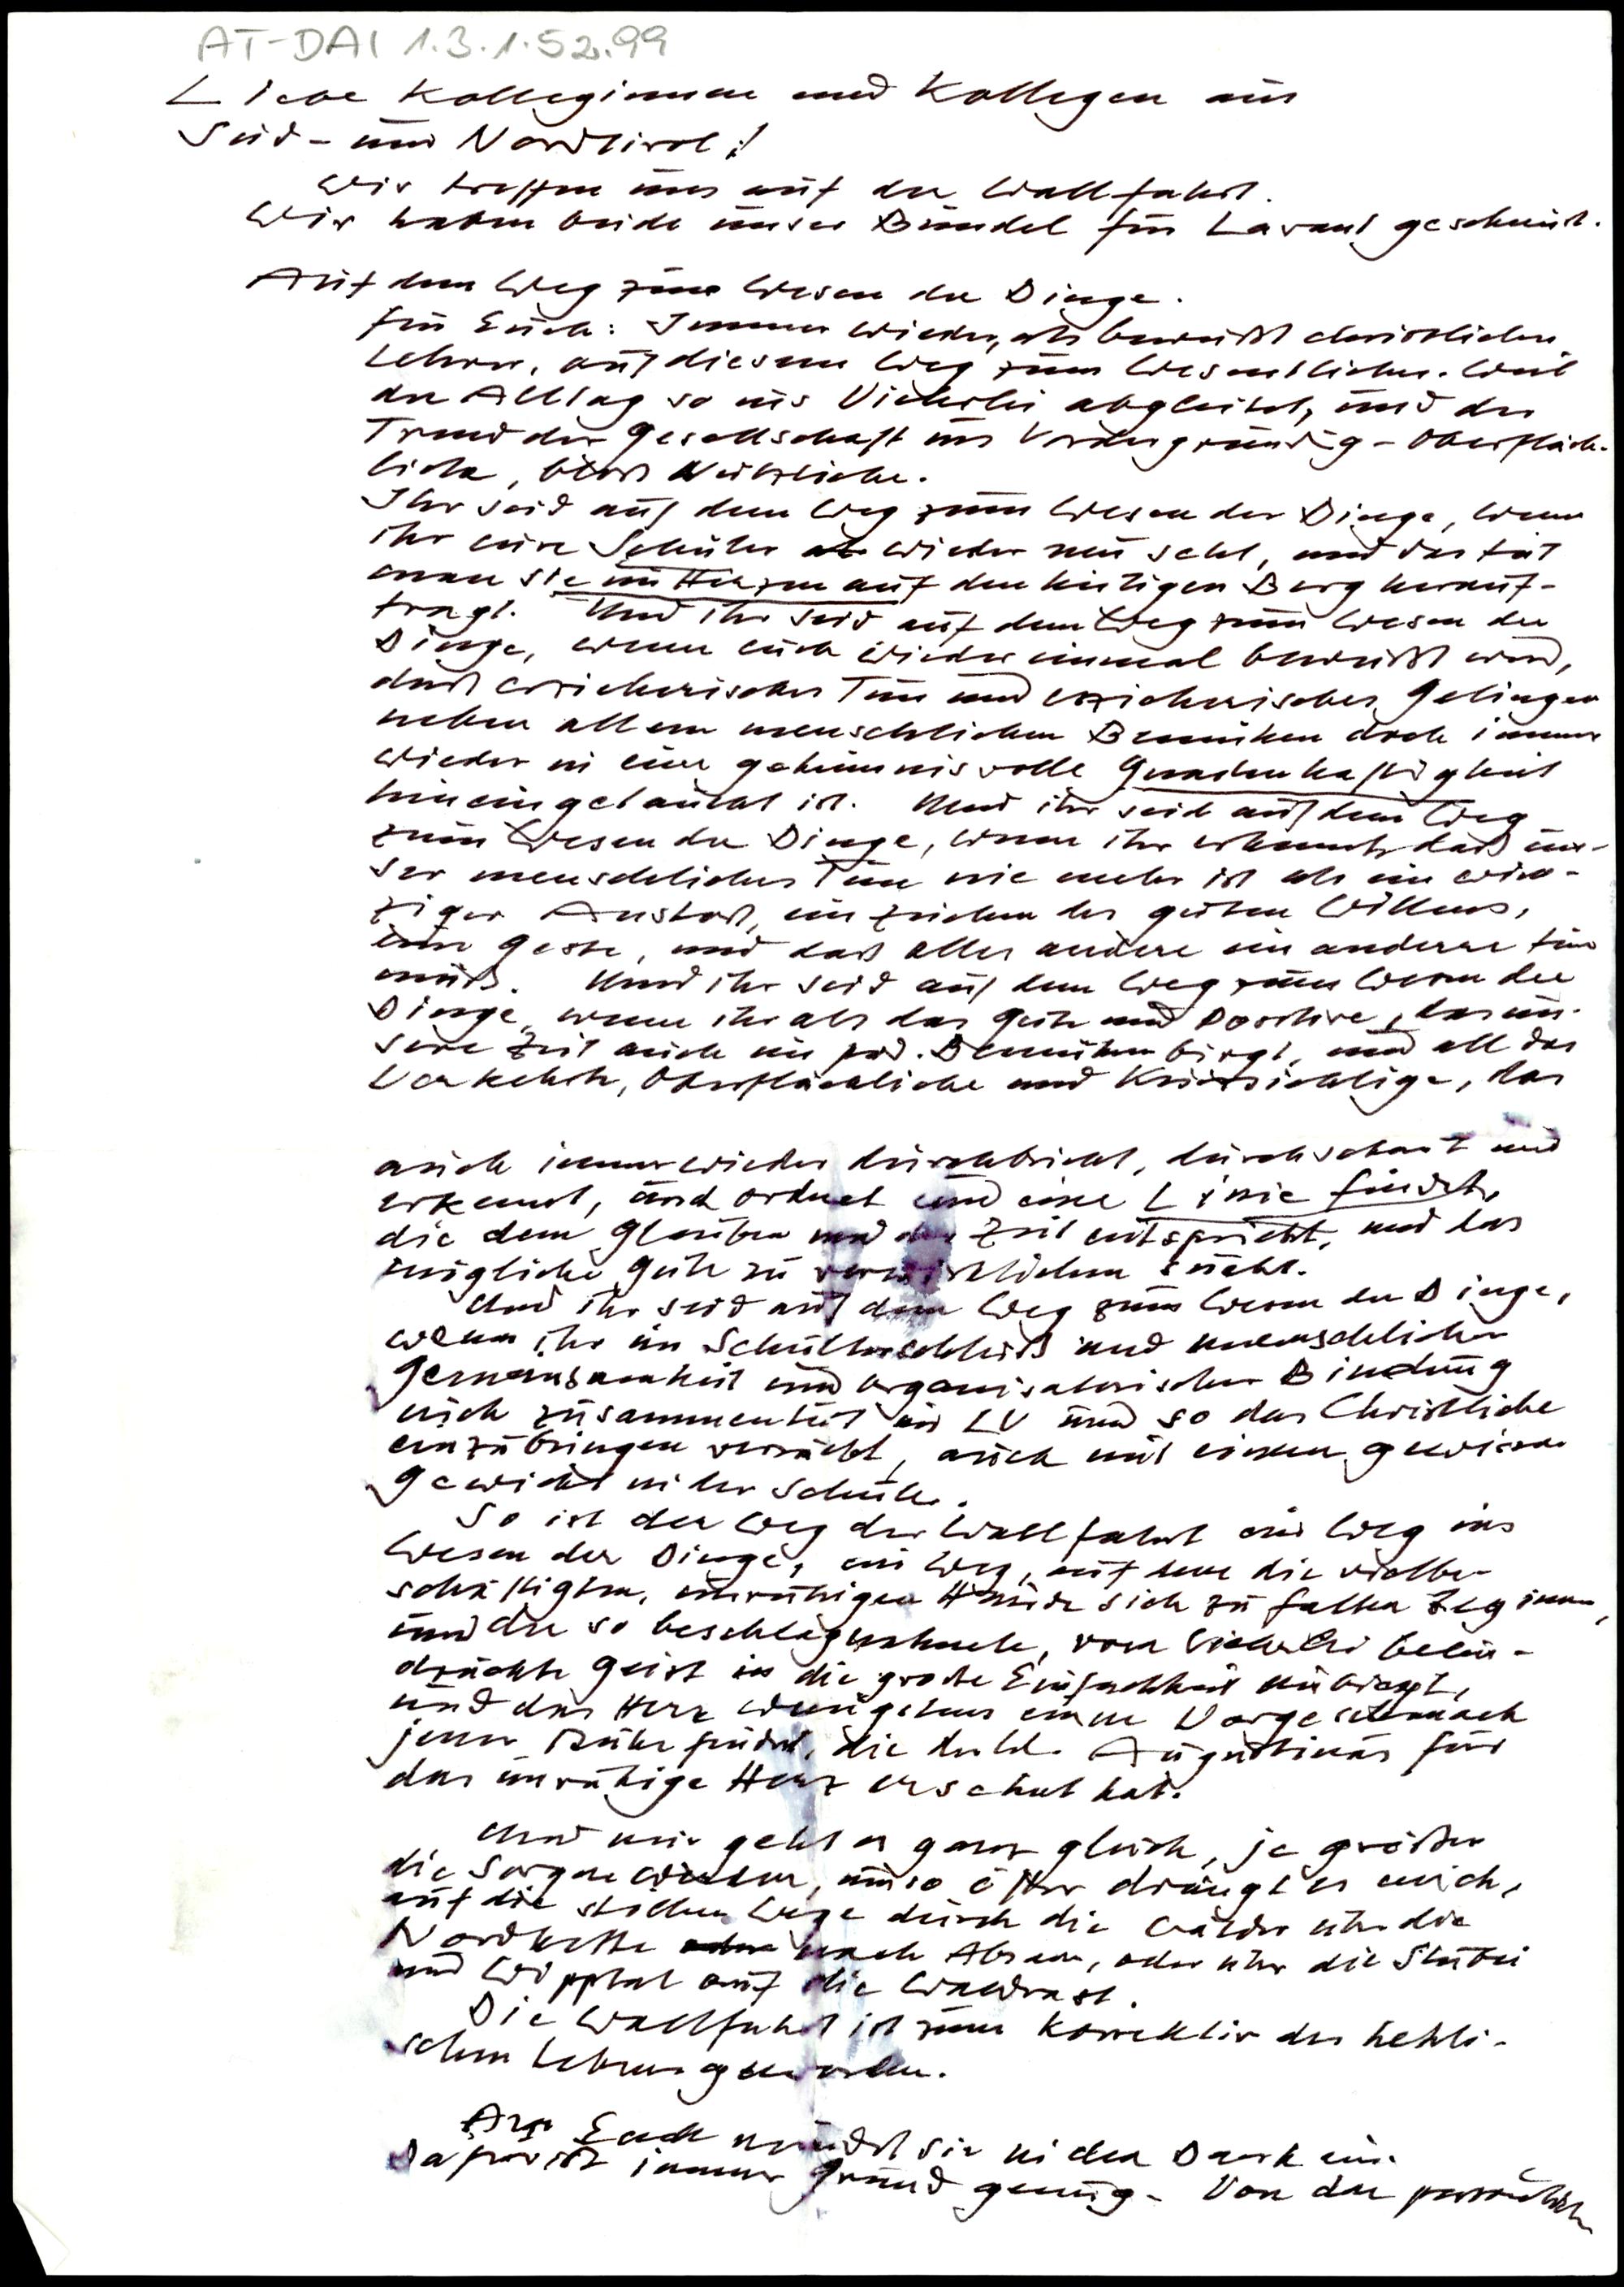 AT-DAI 1.3.1.52.99
Liebe Kolleginnen und Kollegen aus
Süd- und Nordtirol!
Wir treffen uns auf der Wallfahrt.
Wir haben beide unser Bündel für Lavant geschnürt.
Auf dem Weg zum Wesen der Dinge.
Für Euch: Immer wieder, als bewußt christlicher
Lehrer, auf diesem Weg zum Wesentlichen. Weil
der Alltag so ins Vielerlei abgleitet, und der
Trend der Gesellschaft ins Vordergründig-Oberfläch-
liche, bloß Nützliche.
Ihr seid auf dem Weg zum Wesen der Dinge, wenn
ihr eure Schüler wieder neu seht, und das tut
man sie im Herzen auf den heutigen Berg herauf-
trägt. Und ihr seid auf dem Weg zum Wesen der
Dinge, wenn euch wieder einmal bewußt wird,
daß erzieherisches Tun und erzieherisches Gelingen
neben allem menschlichen Bemühen doch immer
wieder in eine geheimnisvolle Gnadenhaftigkeit
hineingetaucht ist. Und ihr seid auf dem Weg
zum Wesen der Dinge, wenn ihr erkennt, daß un-
ser menschliches Tun nie mehr ist als ein win-
ziger Anstoß, ein Zeichen des guten Willens,
eine Geste, und daß alles andere ein anderer tun
muß. Und ihr seid auf dem Weg zum Wesen der
Dinge, wenn ihr all das Gute und Positive, das un-
sere Zeit auch im päd. Bemühen birgt, und all das
Verkehrte, Oberflächliche und Kurzsichtige, das
auch immer wieder durchbricht, durchschaut und
erkennt, und ordnet und eine Linie findet,
die dem Glauben und der Zeit entspricht, und das
mögliche Gute zu verwirklichen sucht.
Und ihr seid auf dem Weg zum Wesen der Dinge,
wenn ihr im Schulterschluß und menschlicher
Gemeinsamkeit und organisatorischer Bindung
euch zusammentut im LV und so das Christliche
einzubringen versucht, auch mit einem gewissen
Gewicht in der Schule.
So ist der Weg der Wallfahrt ein Weg ins
Wesen der Dinge, ein Weg, auf dem die vielbe-
schäftigten, unruhigen Hände sich zu falten beginnen,
und der so beschlagnahmte, vom Vielerlei beein-
druckte Geist in die große Einfachheit einbiegt,
und das Herz wenigstens einen Vorgeschmack
jener Ruhe findet, die der hl. Augustinus für
das unruhige Herz ersehnt hat.
Und mir geht es ganz gleich, je größer
die Sorgen werden, umso öfter drängt es mich,
auf die stillen Wege durch die Wälder über die
Nordkette nach Absam, oder über die Stubai
und Wipptal auf die Waldrast.
Die Wallfahrt ist zum Korrektiv des hekti-
schen Lebens geworden.
Euch mündet sie in den Dank ein.
Dafür ist immer Grund genug. Von der persönlichen